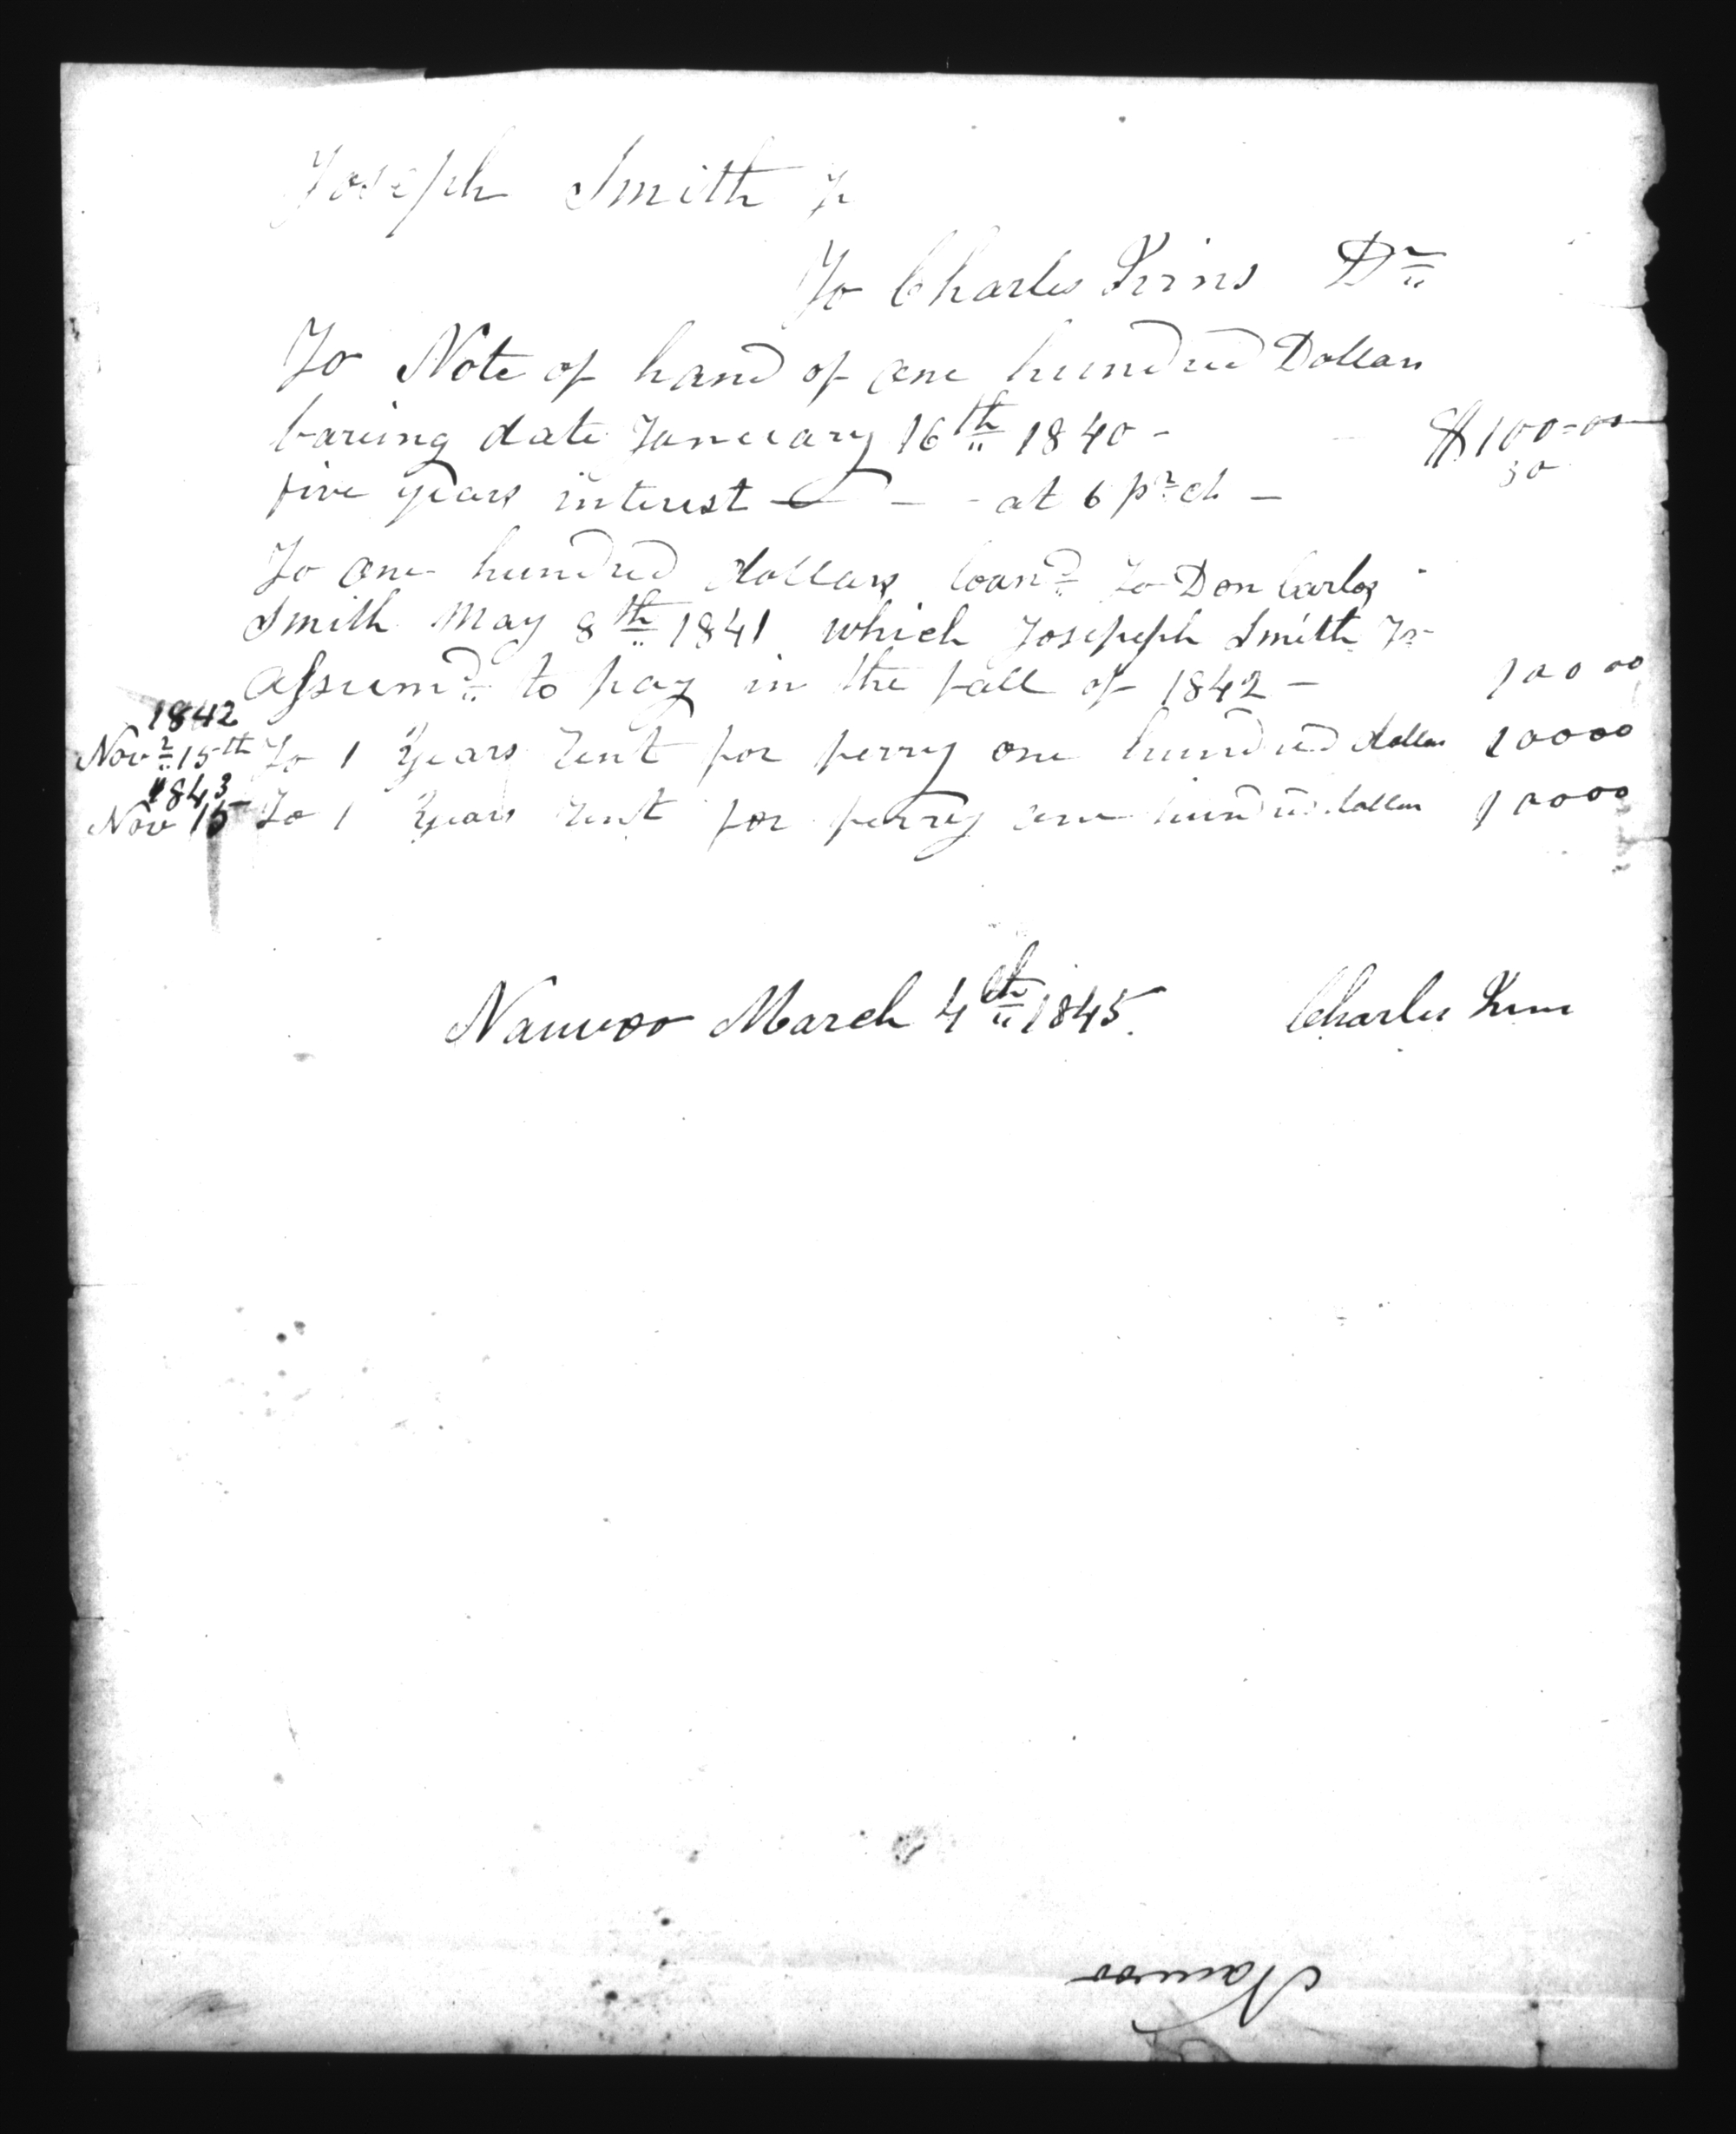 Joseph Smith Jr
To Charles Ivins Dr
To Note of hand of one hundred Dollars
bareing date Janeuary 16th 1840 - - $100=00
five years interest - - at 6 pr ct - 30
To one hundred dollars loand to Don Carlos
Smith May 8th 1841 which Josepeph Smith Jr
Assumd to pay in the fall of 1842 - 100 00
1842
Novr 15th To 1 Years rent for ferry one hundred dollars 100 00
1843
Nov 15 To 1 Years rent for ferry one hundred dollars 100 00
Nauvoo March 4th 1845. Charles Ivins
Nauvoo